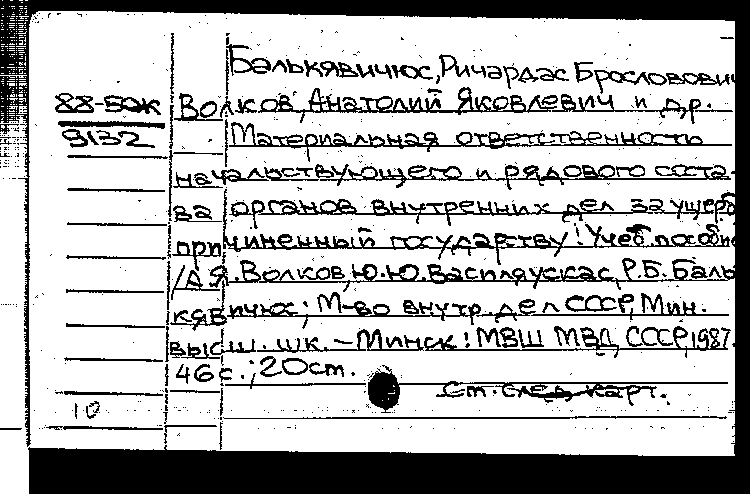 Балькявичюс, Ричардас Брословович
88-БОЖ
9132
Волков, Анатолий Яковлевич и др.
Материальная ответственность
начальствующего и рядового соста-
ва органов внутренних дел за ущерб
причиненный государству: Учеб. пособие
/А.Я. Волков, Ю.Ю. Васпляускас, Р.Б. Баль-
кявичюс; М-во внутр. дел СССР, Мин.
высш. шк. – Минск: МВШ МВД СССР, 1987.
46 с.; 20 cm.
См. след. карт.
10